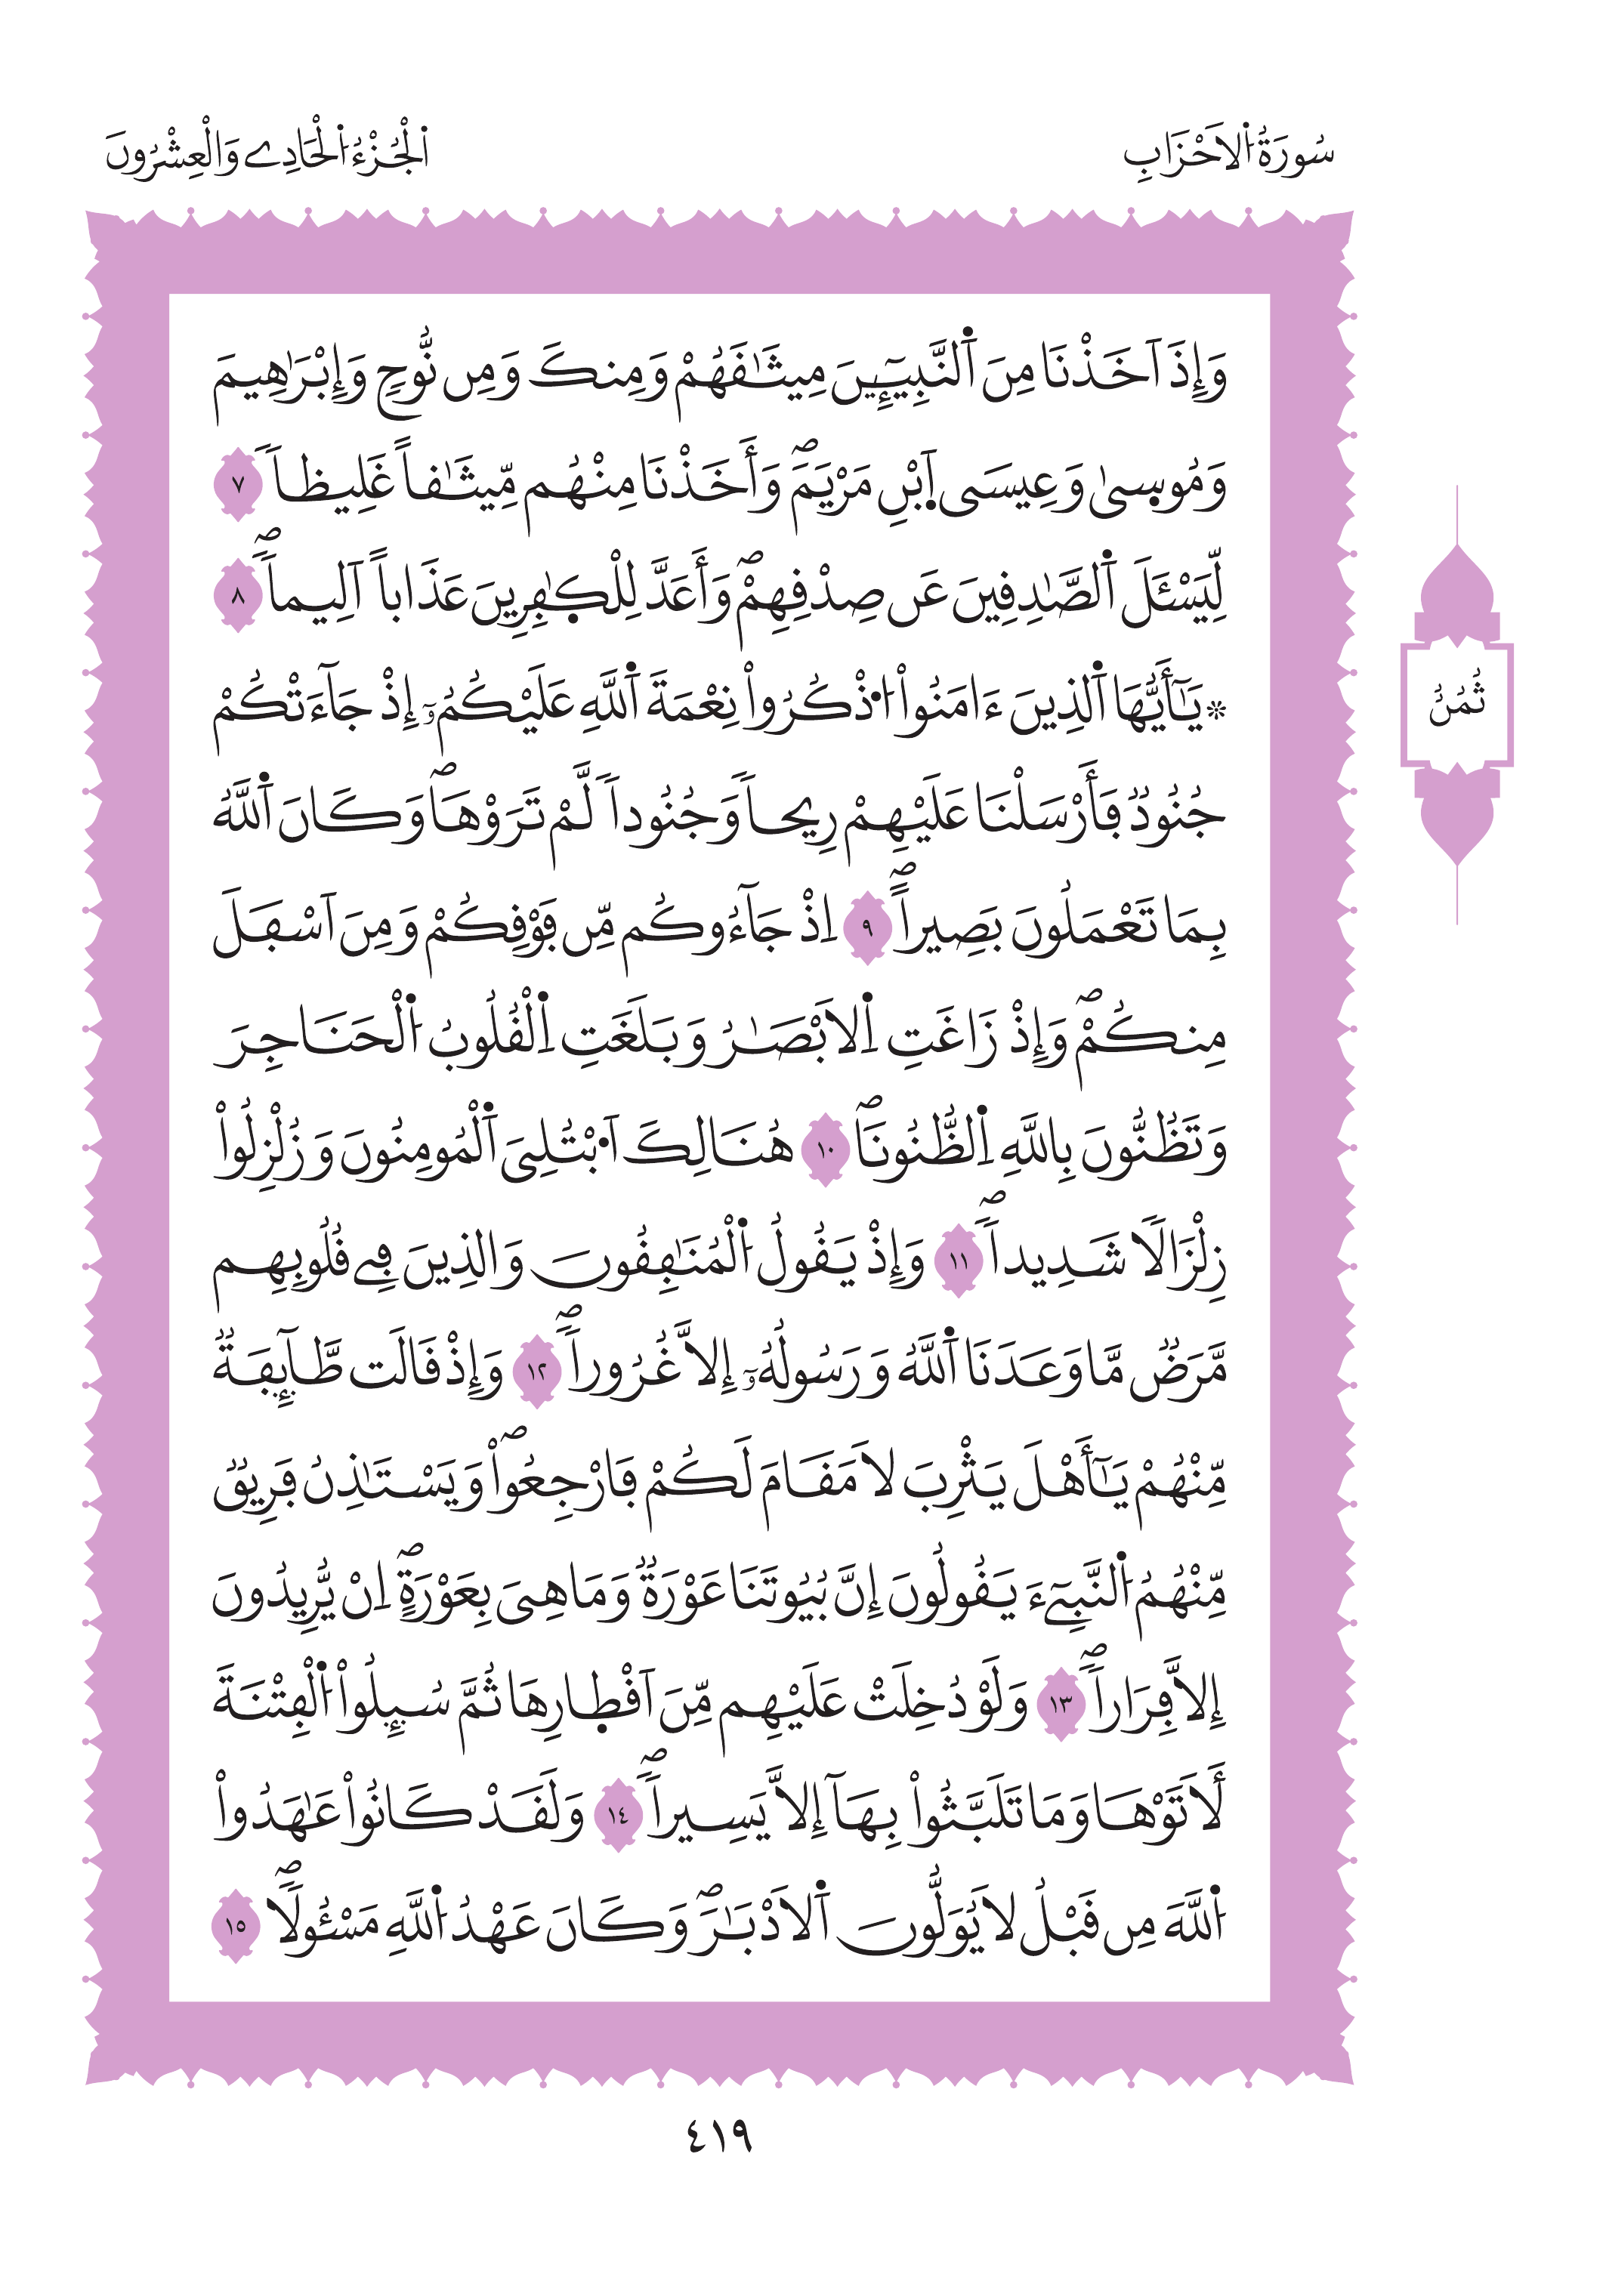 سُورَةُ اُ۬لَاحْزَابِ
اَ۬لْجُزْءُ اُ۬لْحَادِے وَالْعِشْرُونَ
وَإِذَ اَخَذْنَا مِنَ اَ۬لنَّبِيٓـِٕينَ مِيثَٰقَهُمْ وَمِنكَ وَمِن نُّوحٖ وَإِبْرَٰهِيمَ
وَمُوس۪يٰ وَعِيسَى اَ۪بْنِ مَرْيَمَۖ وَأَخَذْنَا مِنْهُم مِّيثَٰقاً غَلِيظاٗ ٧
لِّيَسْـَٔلَ اَ۬لصَّٰدِقِينَ عَن صِدْقِهِمْۖ وَأَعَدَّ لِلْكٰ۪فِرِينَ عَذَاباً اَلِيماٗۖ ٨
۞يَٰٓأَيُّهَا اَ۬لذِينَ ءَامَنُواْ اُ۟ذْكُرُواْ نِعْمَةَ اَ۬للَّهِ عَلَيْكُمُۥٓ إِذْ جَآءَتْكُمْ
جُنُودٞ فَأَرْسَلْنَا عَلَيْهِمْ رِيحاٗ وَجُنُوداٗ لَّمْ تَرَوْهَاۖ وَكَانَ اَ۬للَّهُ
بِمَا تَعْمَلُونَ بَصِيراًۖ ٩ اِذْ جَآءُوكُم مِّن فَوْقِكُمْ وَمِنَ اَسْفَلَ
مِنكُمْۖ وَإِذْ زَاغَتِ اِ۬لَابْصَٰرُ وَبَلَغَتِ اِ۬لْقُلُوبُ اُ۬لْحَنَاجِرَ
وَتَظُنُّونَ بِاللَّهِ اِ۬لظُّنُونَاۖ ١٠ هُنَالِكَ اَ۟بْتُلِيَ اَ۬لْمُومِنُونَ وَزُلْزِلُواْ
زِلْزَالاٗ شَدِيداٗۖ ١١ وَإِذْ يَقُولُ اُ۬لْمُنَٰفِقُونَ وَالذِينَ فِے قُلُوبِهِم
مَّرَضٞ مَّا وَعَدَنَا اَ۬للَّهُ وَرَسُولُهُۥٓ إِلاَّ غُرُوراٗۖ ١٢ وَإِذْ قَالَت طَّآئِفَةٞ
مِّنْهُمْ يَٰٓأَهْلَ يَثْرِبَ لَا مَقَامَ لَكُمْ فَارْجِعُواْۖ وَيَسْتَٰذِنُ فَرِيقٞ
مِّنْهُمُ اُ۬لنَّبِيٓءَ يَقُولُونَ إِنَّ بُيُوتَنَا عَوْرَةٞ وَمَا هِيَ بِعَوْرَةٍۖ اِنْ يُّرِيدُونَ
إِلاَّ فِرَاراٗۖ ١٣ وَلَوْ دُخِلَتْ عَلَيْهِم مِّنَ اَقْط۪ارِهَا ثُمَّ سُئِلُواْ اُ۬لْفِتْنَةَ
لَأَتَوْهَا وَمَا تَلَبَّثُواْ بِهَآ إِلاَّ يَسِيراٗۖ ١٤ وَلَقَدْ كَانُواْ عَٰهَدُواْ
اُ۬للَّهَ مِن قَبْلُ لَا يُوَلُّونَ اَ۬لَادْبَٰرَۖ وَكَانَ عَهْدُ اُ۬للَّهِ مَسْـُٔولاٗۖ ١٥
ثُمُنُ
٤١٩